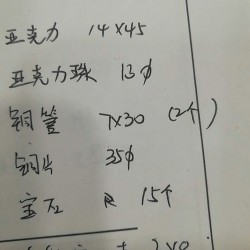 亚克力 14×45
亚克力珠 13φ
铜管 7×30 (2个)
铜片 35φ
宝石 R 15个